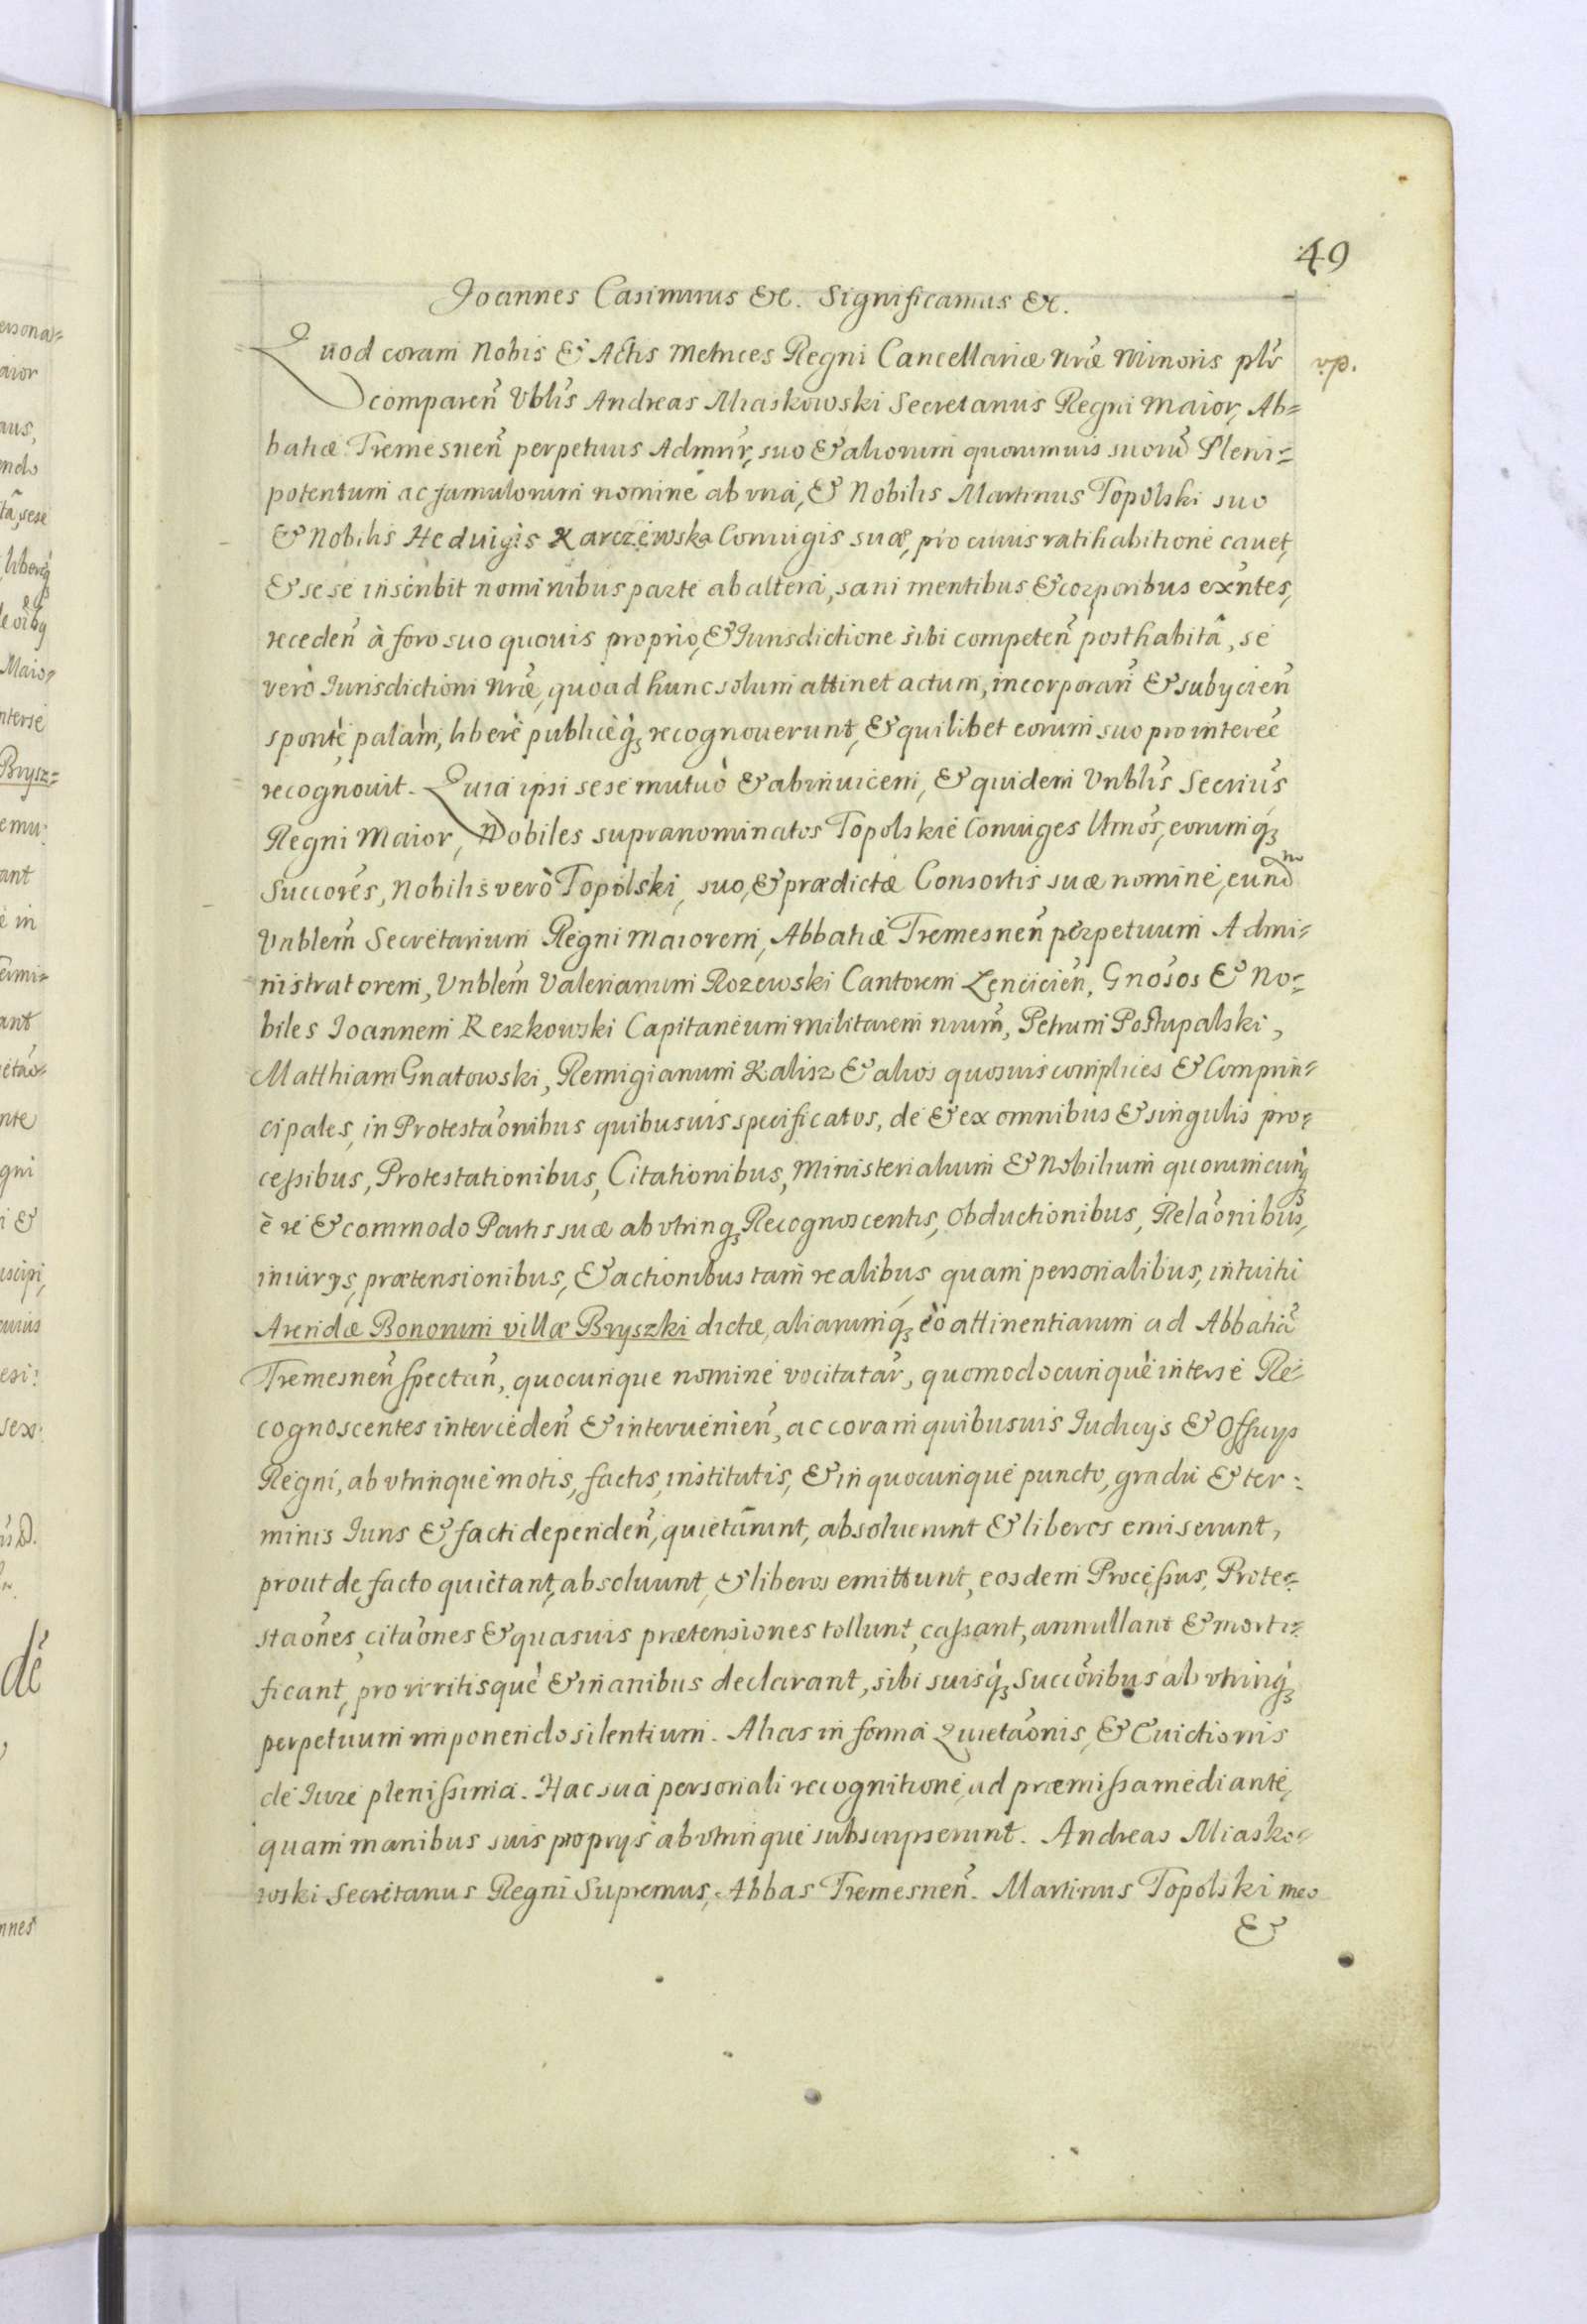 49
Joannes Casimirus &c. Significamus &c.
Quod coram Nobis & Actis Metrices Regni Cancellariæ nr̃æ Minoris pl̃r
comparen̄ Vbl̃is Andreas Miaskowski Secretarius Regni Maior, Ab=
batiæ Tremesnen̄ perpetuus Admñr, suo & aliorum quorumuis suorũ Pleni=
potentum ac famulorum nomine ab vna, & Nobilis Martinus Topolski suo
& Nobilis Heduigis Karczewska Coniugis suæ, pro cuius ratihabitione cauet,
& sese inscribit nominibus parte ab altera, sani mentibus & corporibus exñtes,
receden̄ à foro suo quouis proprio, & Iurisdictione sibi competen̄ posthabitâ, se
verò Iurisdictioni nr̃æ, quoad hunc solum attinet actum, incorporan̄ & subycien̄
spontè, palàm, liberè publicèq́ recognouerunt, & quilibet eorum suo pro intereẽ
recognouit. Quia ipsi sese mutuò & abinuicem, & quidem Vnbl̃is Secrius̃
Regni Maior, Nobiles supranominatos Topolskie Coniuges l̃tmos, eorumq́
Succores̃, Nobilis verò Topolski, suo, & prædictæ Consortis suæ nomine, eund̃m
Vnblem̃ Secretarium Regni Maiorem, Abbatiæ Tremesnen̄ perpetuum Admi=
nistratorem, Vnblem̃ Valerianum Rozewski Cantorem Lencicien̄, Gnosos̃ & No=
biles Joannem Reszkowski Capitaneum militarem nrum̃, Petrum Postupalski,
Matthiam Gnatowski, Remigianum Kalisz & alios quosuis complices & Comprin=
cipales, in Protestaõnibus quibusuis specificatos, de & ex omnibus & singulis pro=
cessibus, Protestationibus, Citationibus, Ministerialium & Nobilium quorumcunq́
è re & commodo Partis suæ ab vtrinq́ Recognoscentis, Obductionibus, Relaõnibus,
iniurys, prætensionibus, & actionibus tam realibus, quam personalibus, intuitu
Arendæ Bonorum villæ Bryszki dictæ, aliarumq́ eò attinentiarum ad Abbatiã
Tremesnen̄ spectan̄, quocunque nomine vocitatar̃, quomodocunquè inter se Re=
cognoscentes interceden̄ & interuenien̄, ac coram quibusuis Iudicys & Officys
Regni, ab vtrinque motis, factis, institutis, & in quocunque puncto, gradu & ter=
minis Iuris & facti dependen̄, quietãrunt, absoluerunt & liberos emiserunt,
prout de facto quietant, absoluunt, & liberos emittunt, eosdem Processus, Prote=
staões, citaões & quasuis prætensiones tollunt, cassant, annullant & morti=
ficant, pro irritisquè & inanibus declarant, sibi suisq́ succoribus̃ ab vtrinq́
perpetuum imponendo silentium. Alias in forma Quietaõnis, & Euictionis
de Iure plenissima. Hac sua personali recognitione, ad præmissa mediante,
quam manibus suis proprys ab vtrinque subscripserunt. Andreas Miasko=
wski Secretarius Regni Supremus, Abbas Tremesnen̄. Martinus Topolski meo
&